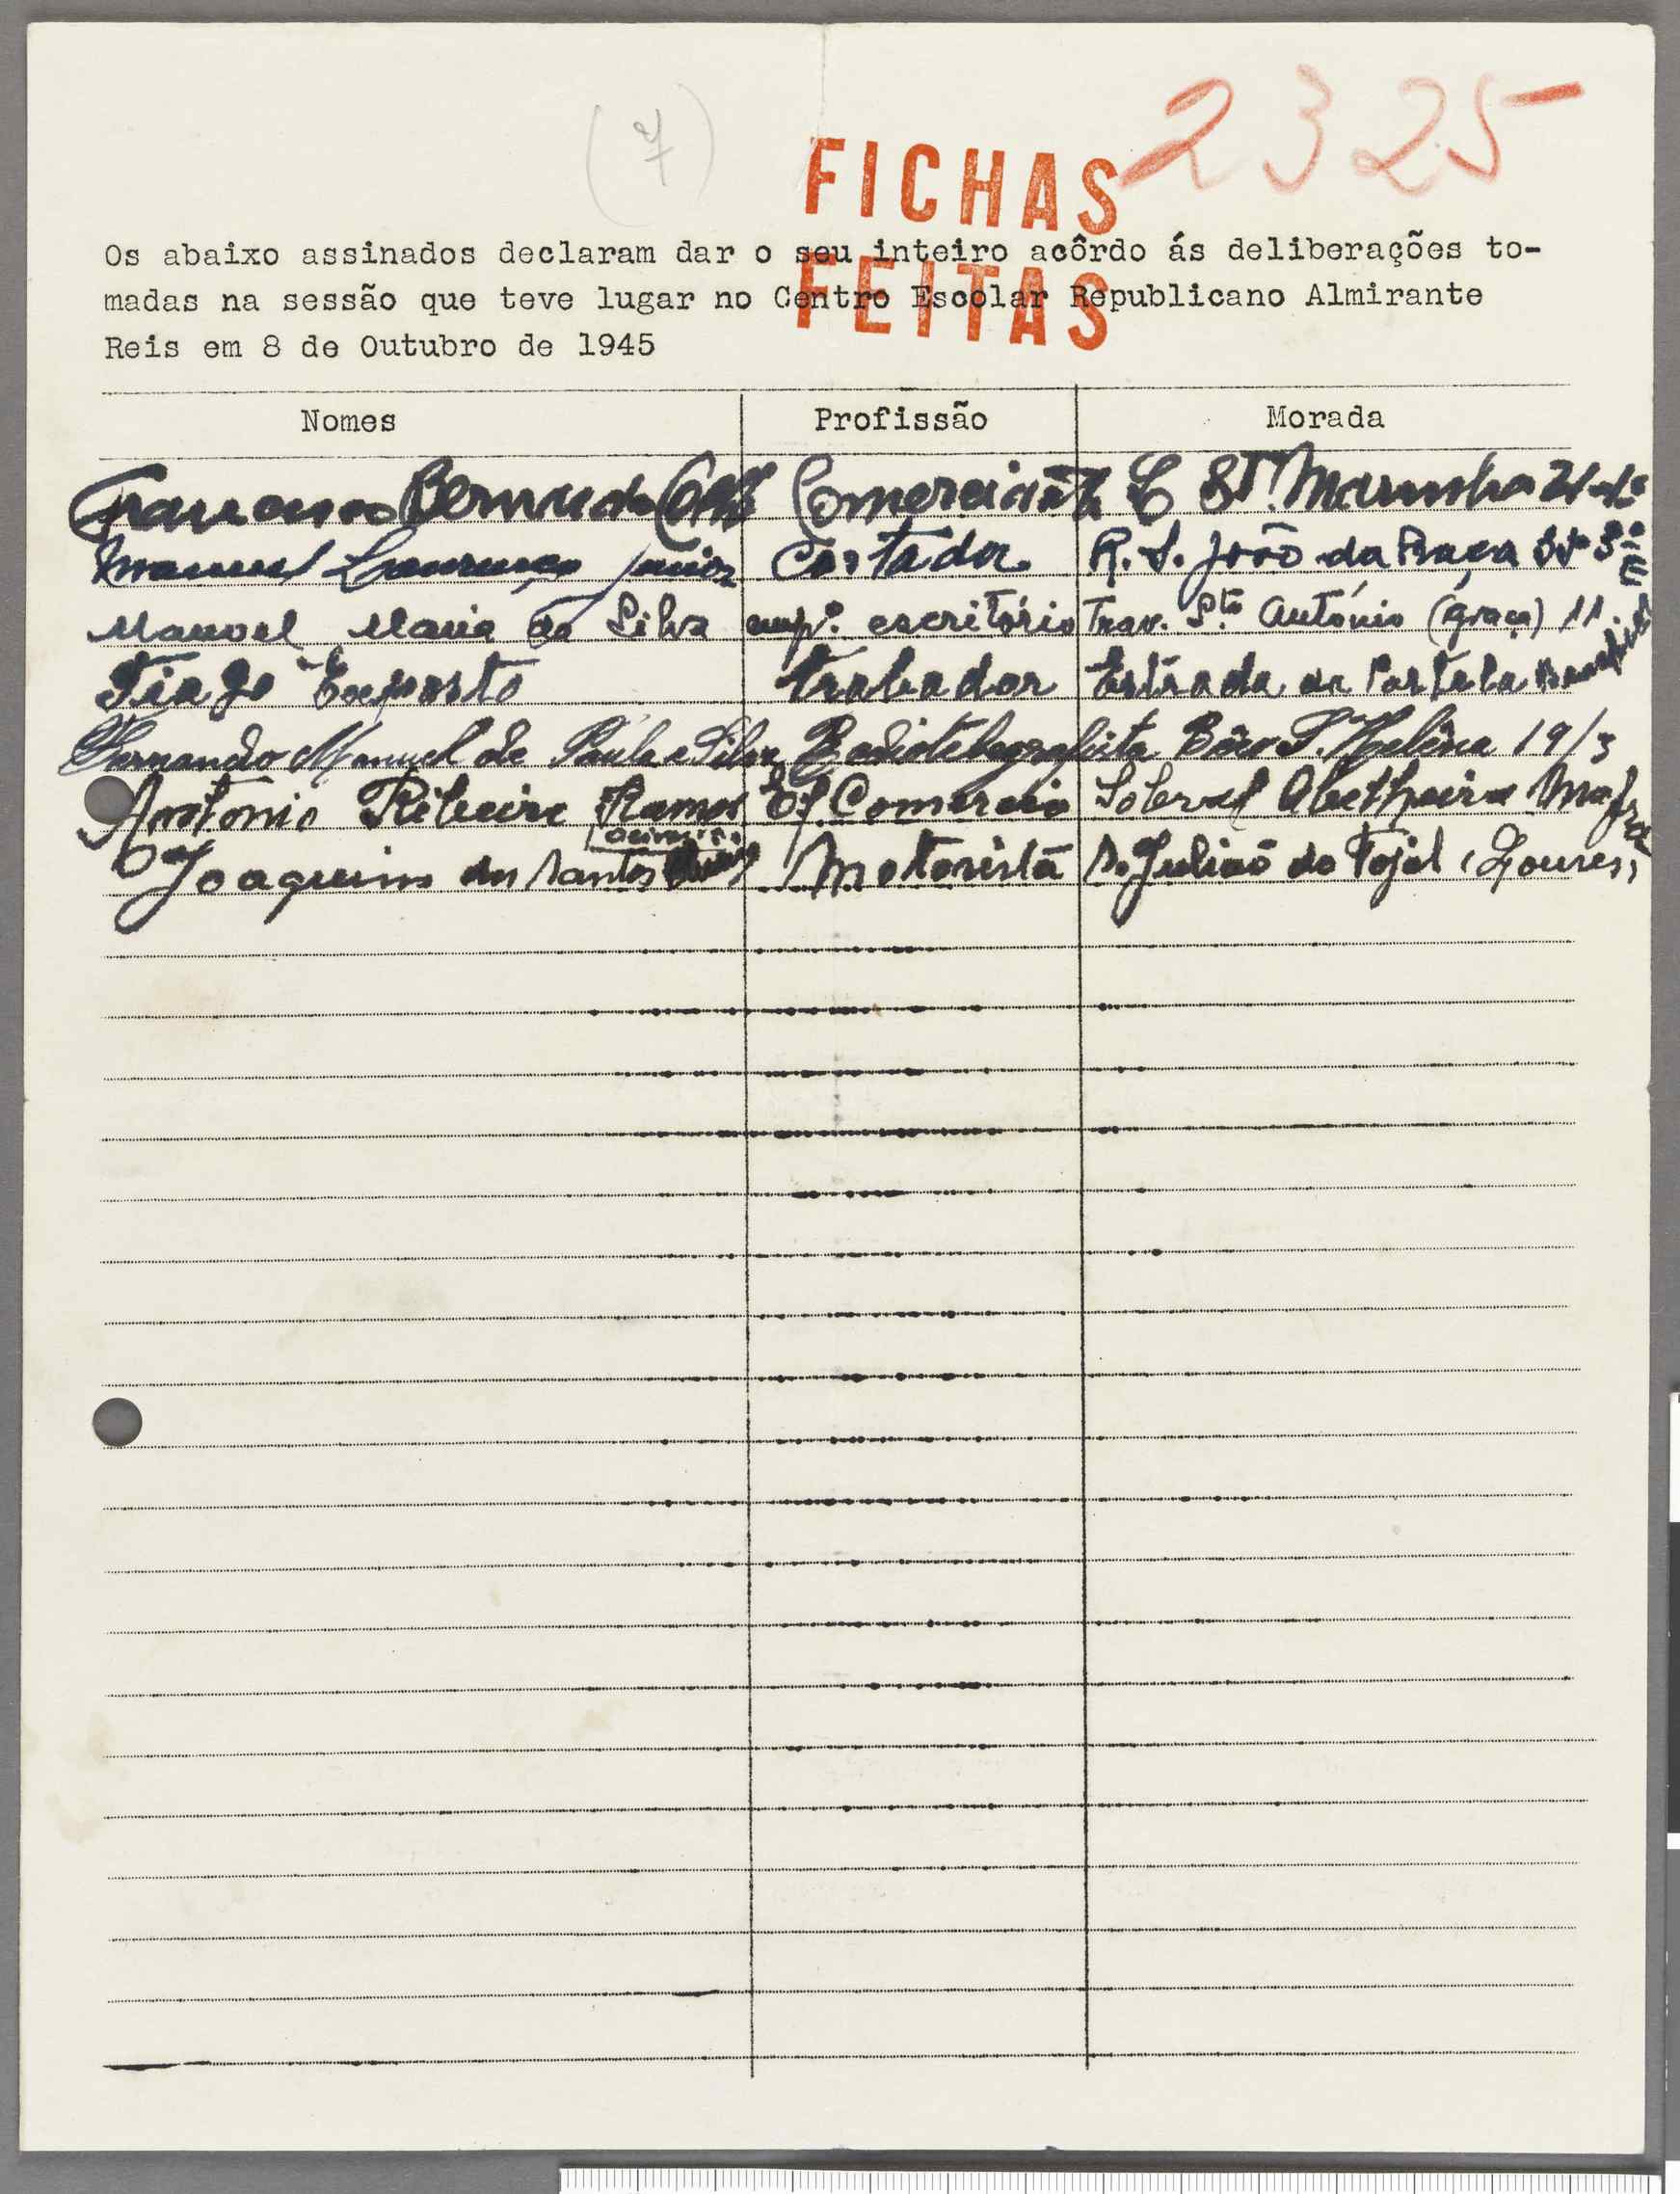 2325
(7)
FICHAS
Os abaixo assinados declaram dar o seu inteiro acôrdo ás deliberações to-
FEITAS
madas na sessão que teve lugar no Centro Escolar Republicano Almirante
Reis em 8 de Outubro de 1945
Nomes Profissão Morada
Francisco Comerciante St. Marinha 21-1º
Manuel Lourenço Junior Cortador R. S. João da Praça
Manoel Maria da Silva emp. escritório Trav. Sto António (Graça) 11.
Tiago Exposto trabador Estrada da Portela
Fernando Manuel de Paula e Silva Radiotelegrafista Bêco S. Helêna 19/3
António Ribeiro Ramos E/ Comercio Sobral Abelheira Mafra
Oliveira
Joaquim dos Santos Motoristã S. Julião do Tojal (Loures)